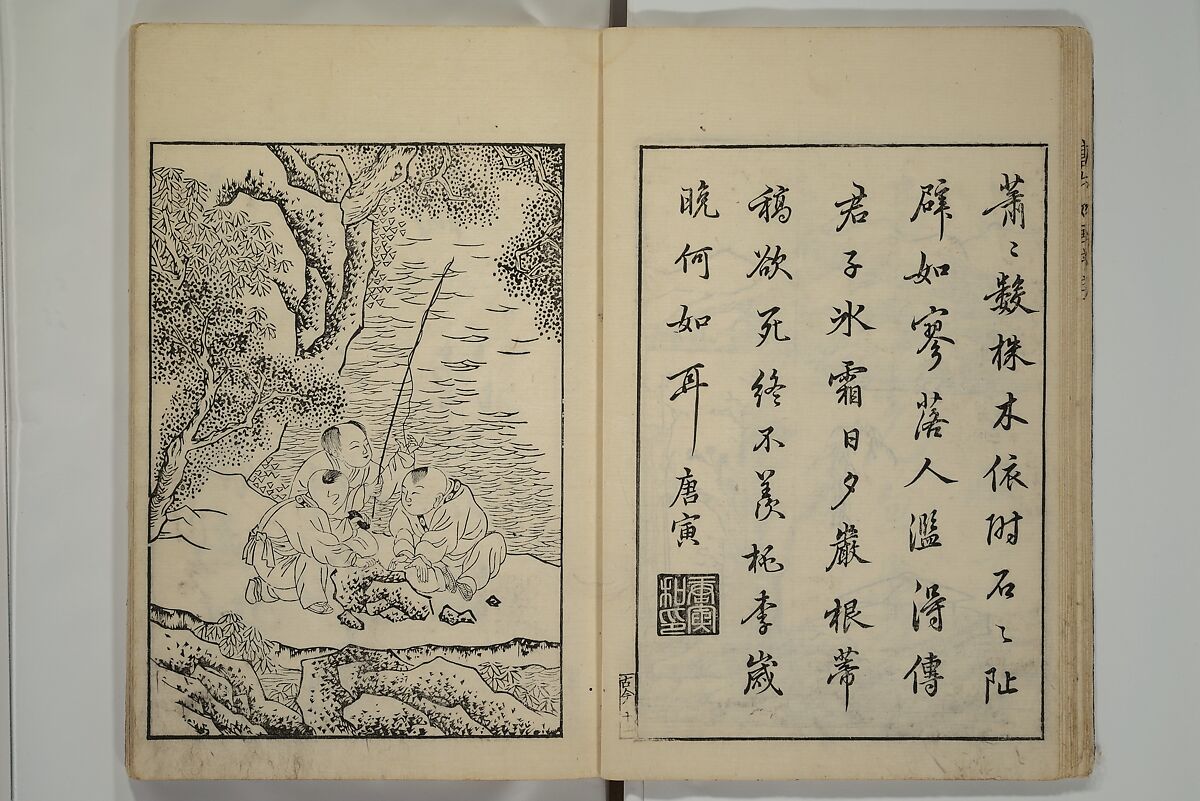 蕭〻數株木依附石〻阯
辟如寥落人濫得傳
君子冰霜日夕嚴根蒂
稿欲死終不羨桃李歲
晚何如耳 唐寅
唐寅私印
古今